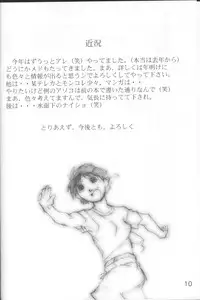 近況
今年はずうっとアレ(笑)やってました。(本当は去年から)
どうにかメドもたってきました。まあ、詳しくは年明けに
も色々と情報が出ると思うこでよろしくしてやって下さい。
他は・某テレガとモンコレ少々。マンガは・・
やりたいなあ。例のアソコは前の本で書いた通りなんで(笑)
まあ、色々考えてますんで、気長に待ってて下さい。
後は・・・水面下のナイショ(笑)
とりあえず、今後とも、よろしく
10